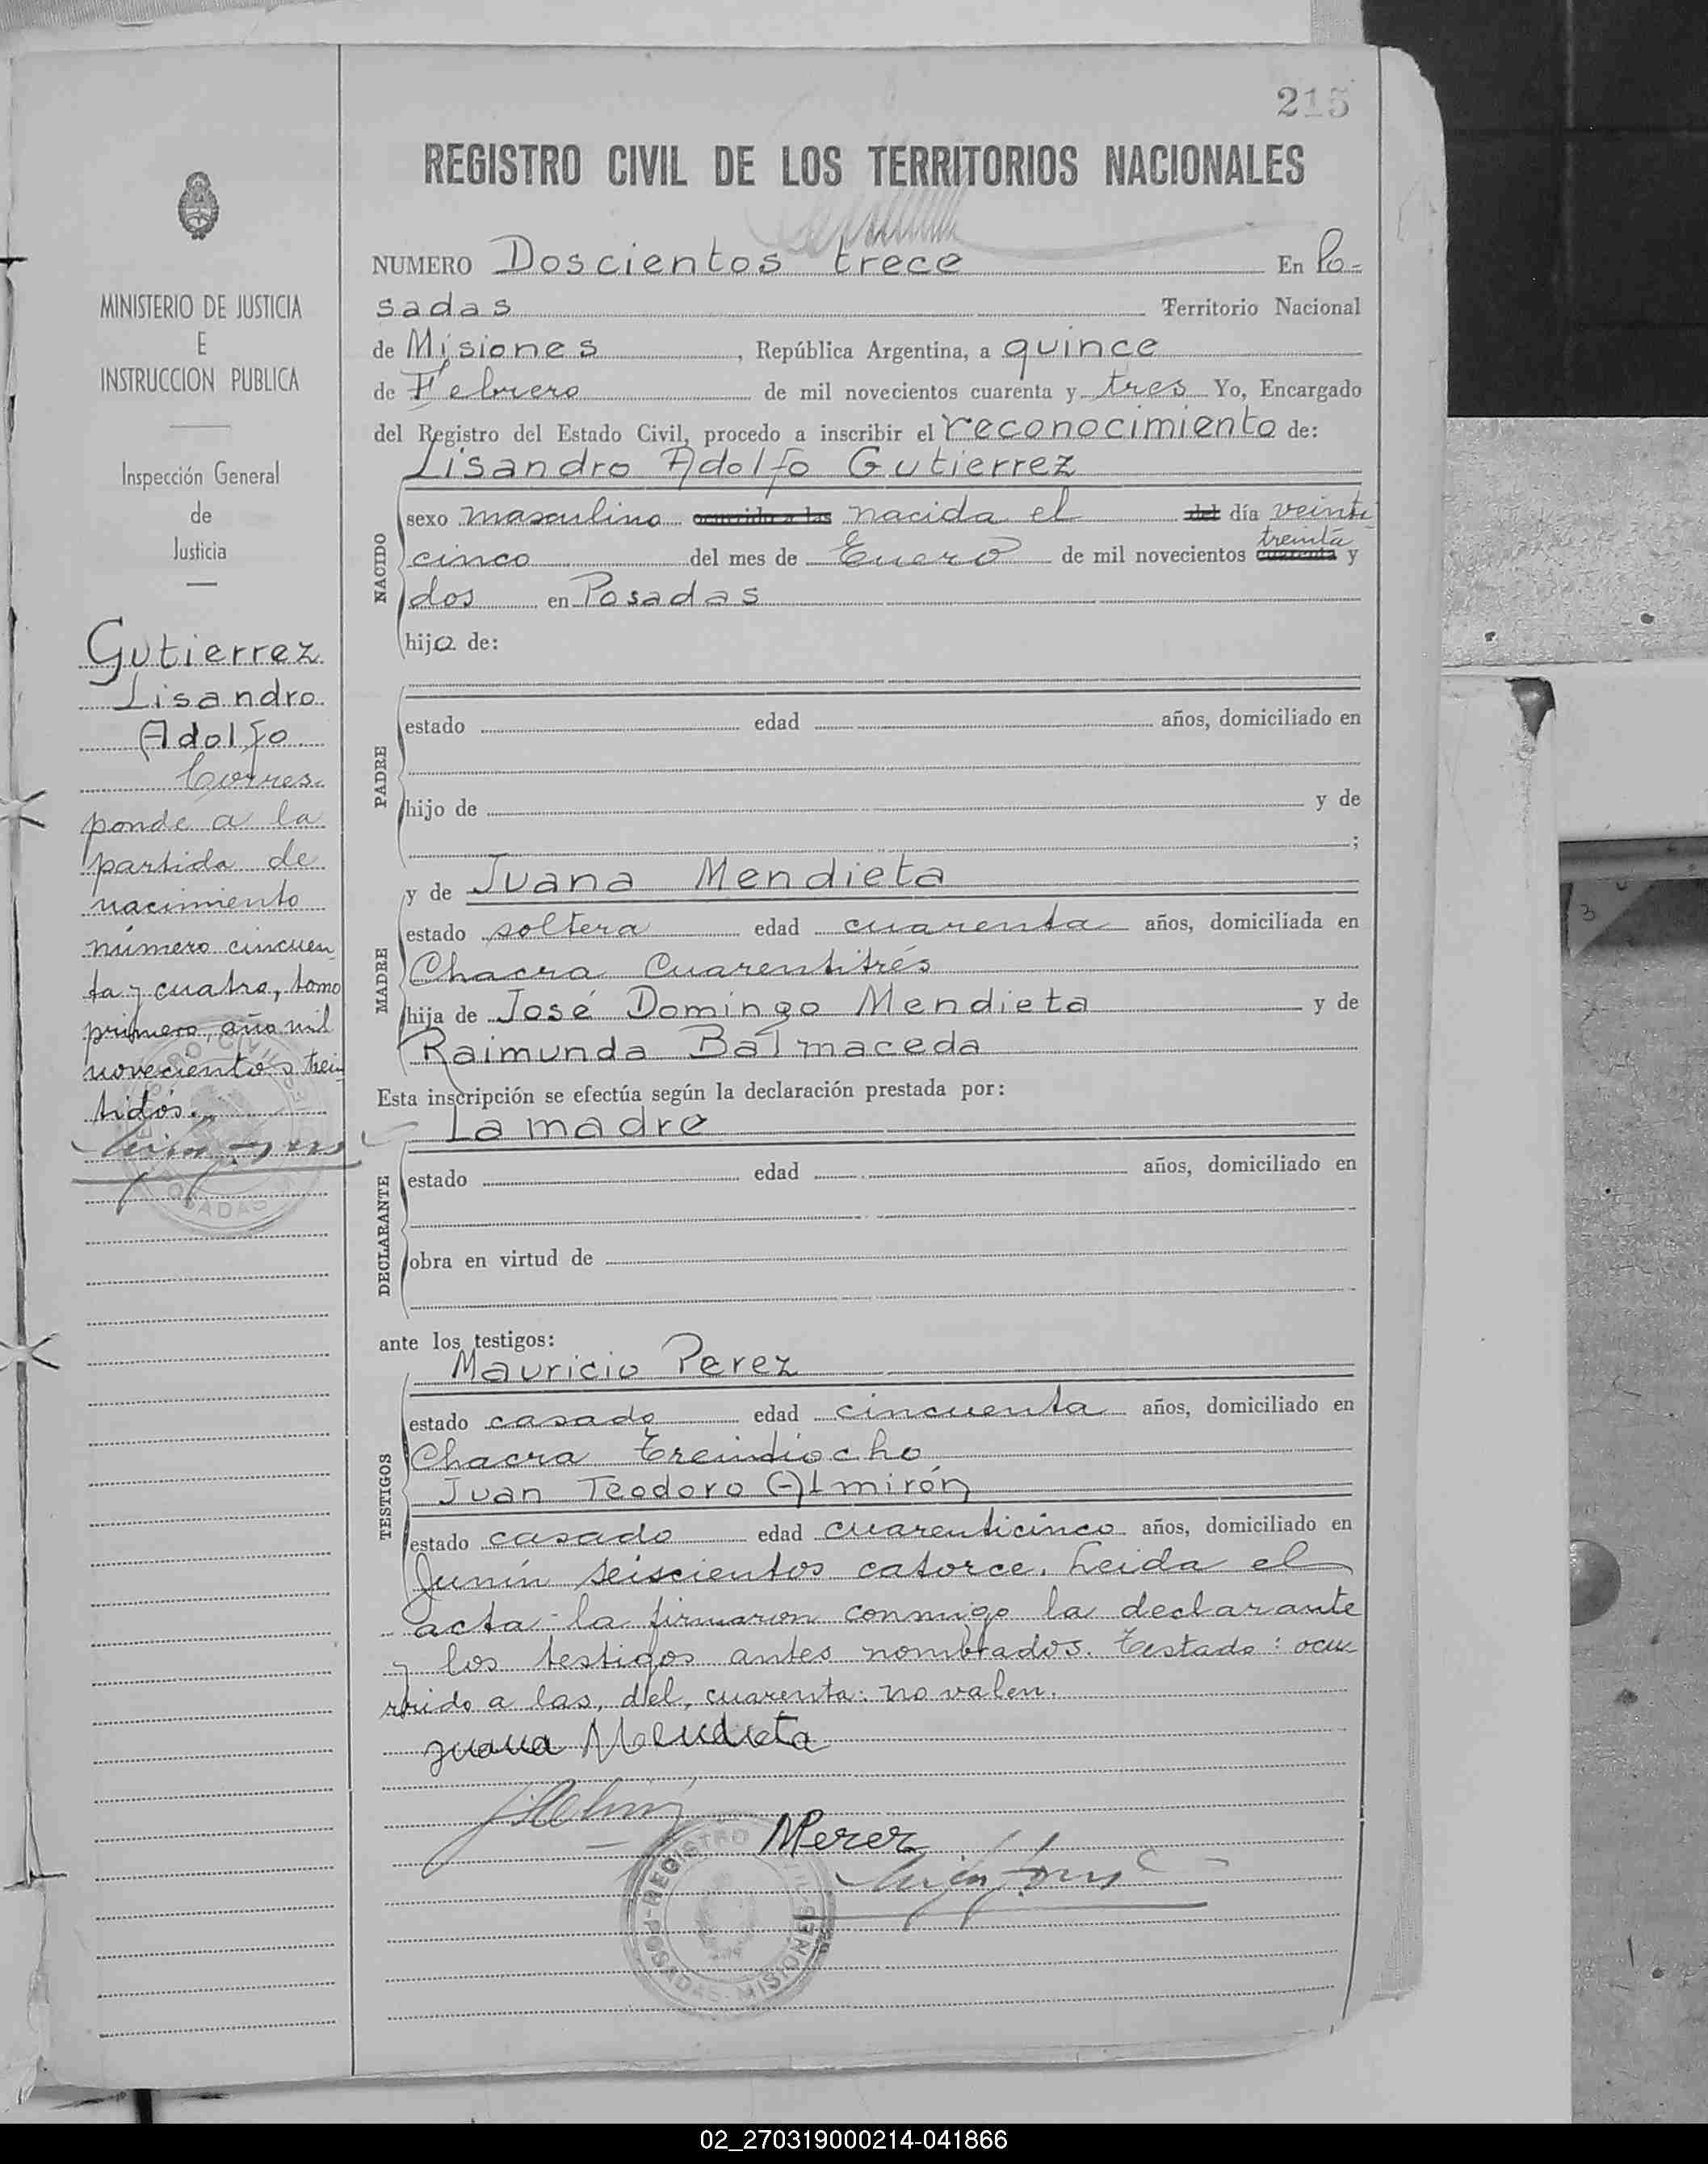 215
REGISTRO CIVIL DE LOS TERRITORIOS NACIONALES
MINISTERIO DE JUSTICIA
E
INSTRUCCION PUBLICA
Inspección General
de
Justicia
Gutierrez
Lisandro
Adolfo
Corres-
ponde a la
partida de
nacimiento
número cincuen
ta y cuatro, tomo
primero, año mil
novecientos trein
tidós.
NUMERO Doscientos trece En Po-
sadas Territorio Nacional
de Misiones, República Argentina, a quince
de Febrero de mil novecientos cuarenta y tres Yo, Encargado
del Registro del Estado Civil, procedo a inscribir el reconocimiento de:
Lisandro Adolfo Gutierrez
NACIDO
sexo masculino ocurrido a las nacida el del día veinti
treinta
cinco del mes de Enero de mil novecientos cuarenta y
dos en Posadas
hijo de:
PADRE
estado edad años, domiciliado en
hijo de y de
;
MADRE
y de Juana Mendieta
estado soltera edad cuarenta años, domiciliada en
Chacra Cuarentitrés
hija de José Domingo Mendieta y de
Raimunda Balmaceda
Esta inscripción se efectúa según la declaración prestada por:
La madre
DECLARANTE
estado edad años, domiciliado en
obra en virtud de
ante los testigos:
TESTIGOS
Mauricio Perez
estado casado edad cincuenta años, domiciliado en
Chacra treintiocho
Juan Teodoro Almirón
estado casado edad cuarenticinco años, domiciliado en
Junín seiscientos catorce. Leida el
acta la firmaron conmigo la declarante
y los testigos antes nombrados. Testado: ocu
rrido a las, del, cuarenta: no valen.
Juana Mendieta
MPerez
REGISTRO CIVIL
POSADAS - MISIONES
02_270319000214-041866